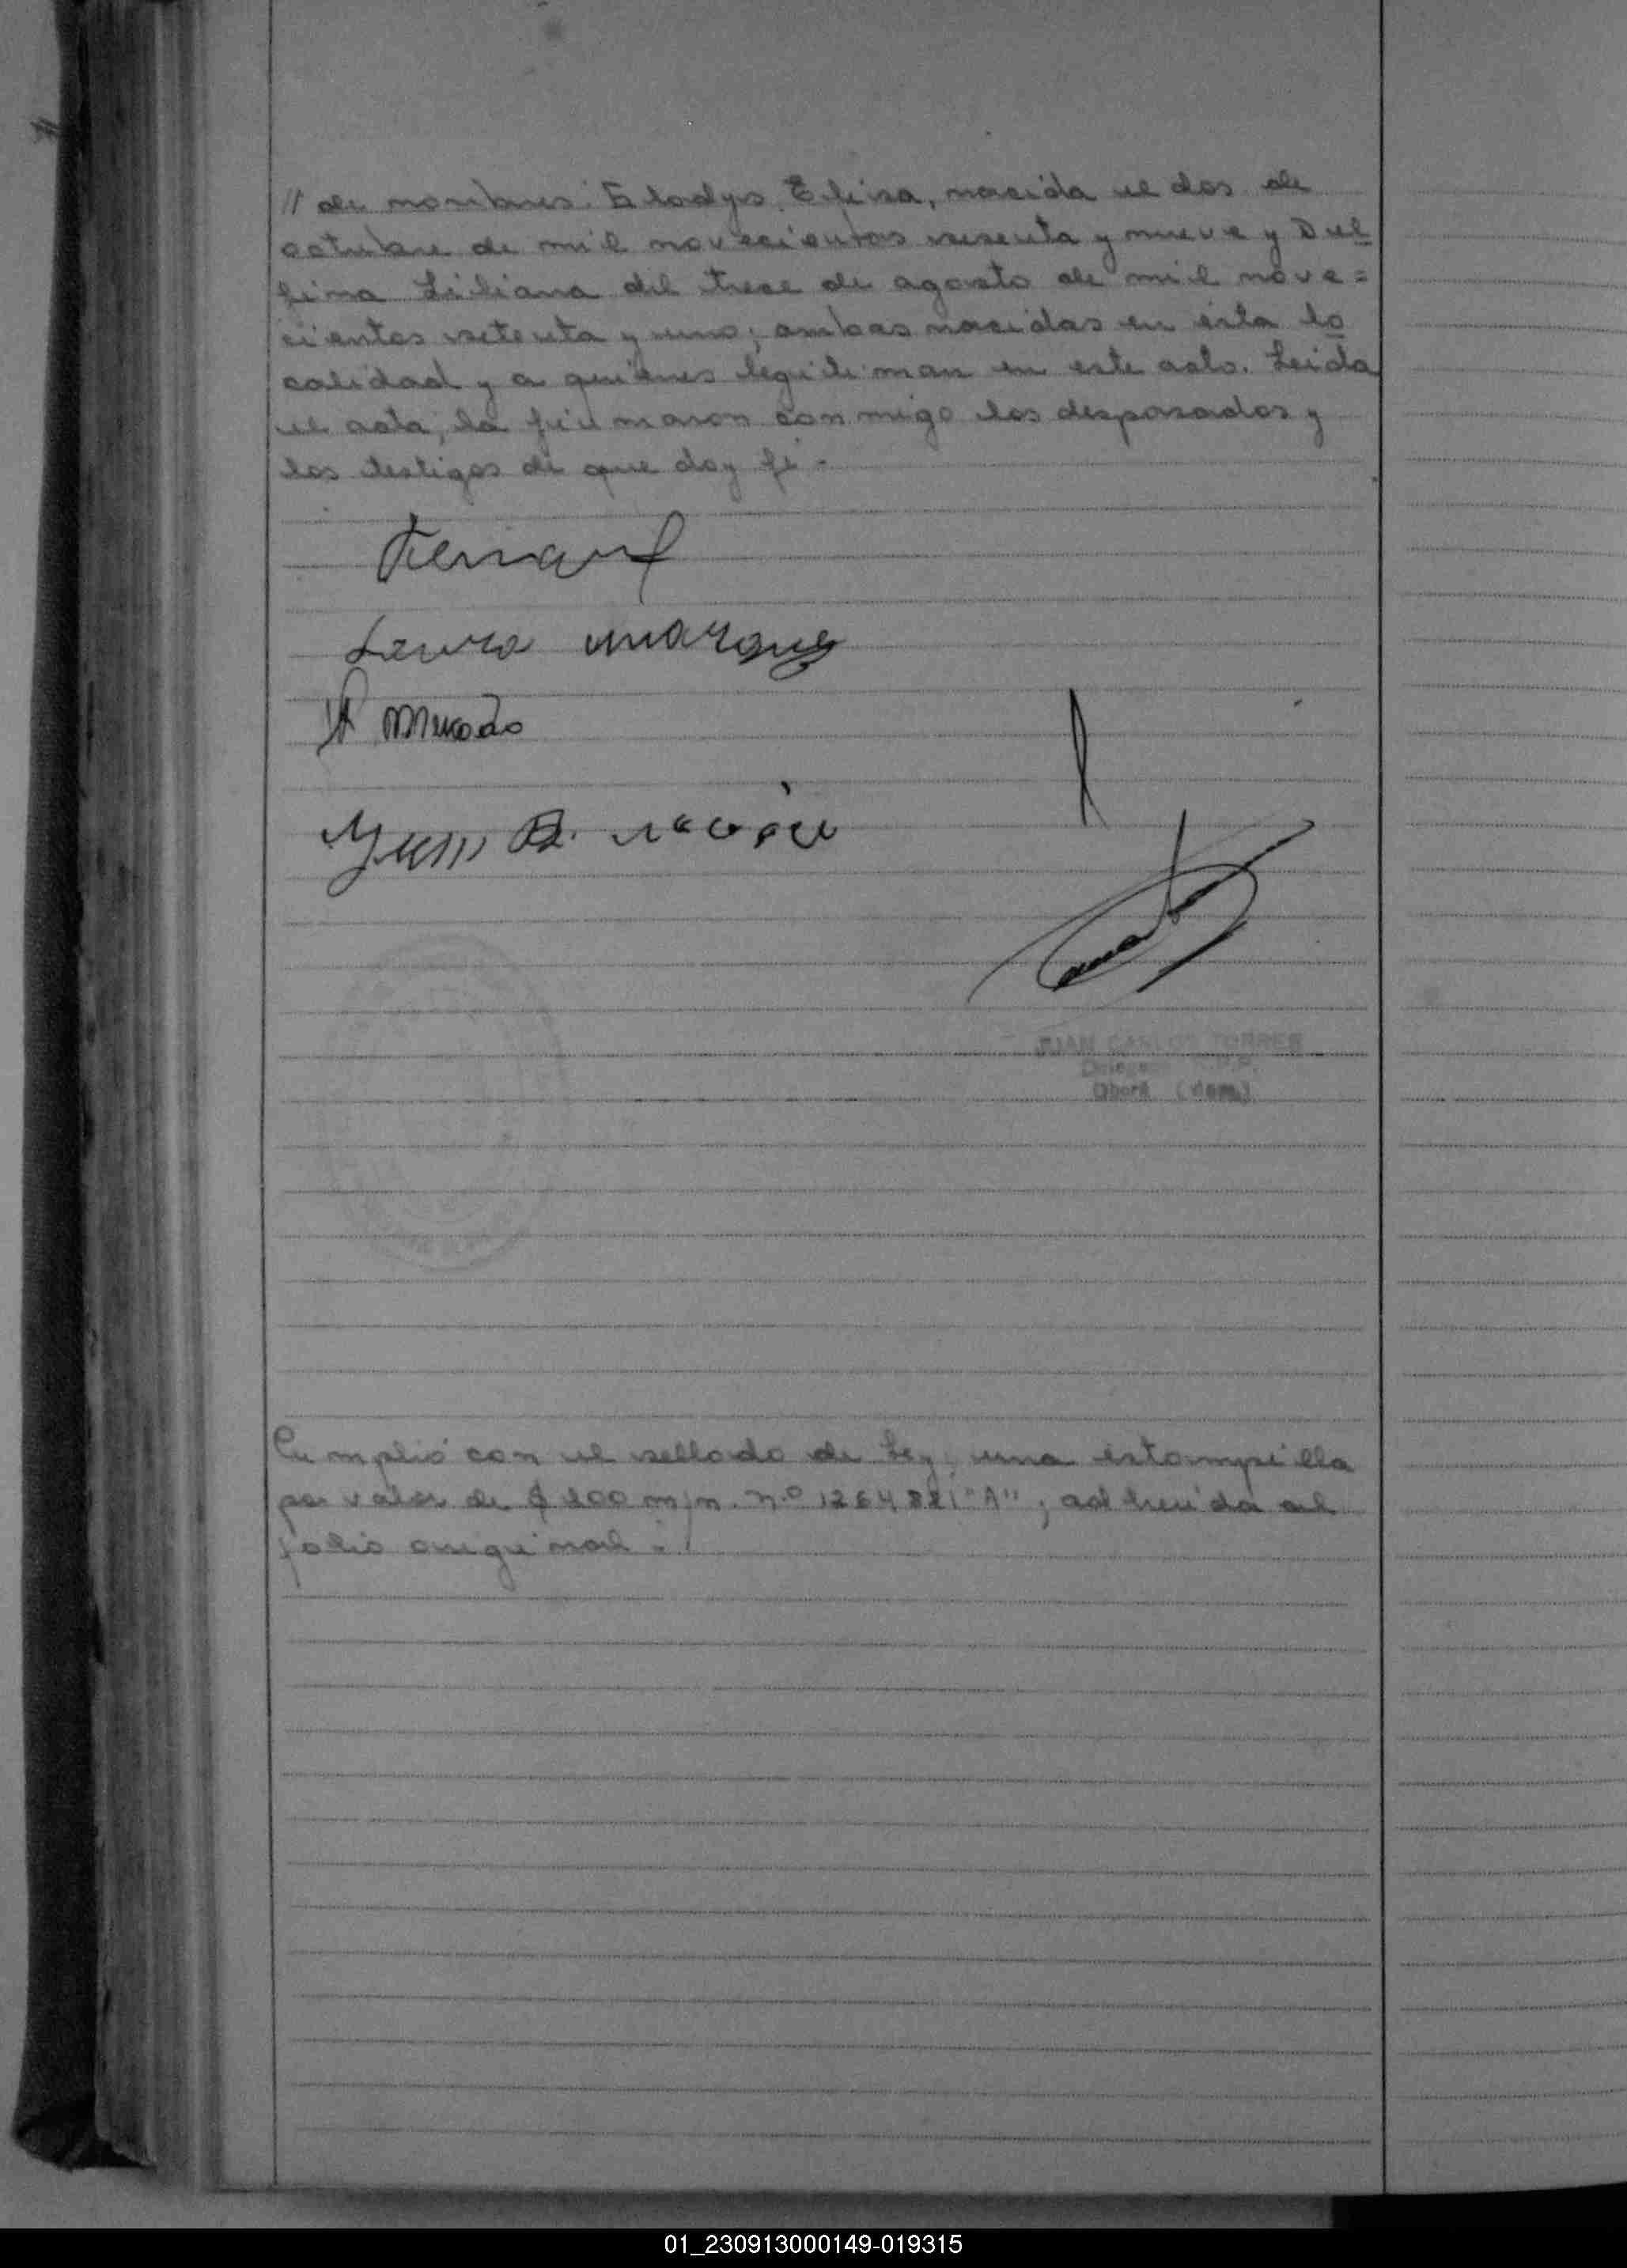 // de nombres: Gladys Elisa, nacida el dos de
octubre de mil novecientos sesenta y nueve y Del
fina Liliana del trece de agosto de mil nove=
cientos setenta y uno; ambas nacidas en esta lo
calidad y a quienes legitiman en este acto. Leida
el acta, la firmaron conmigo los desposados y
los testigos de que doy fé.-
Laura Marque
JUAN CARLOS TORRES
Oberá
Cumplió con el sellado de Ley, una estampilla
por valor de $ 200 m/n. Nº 1264821 "A", adherida al
folio original.-
01_230913000149-019315